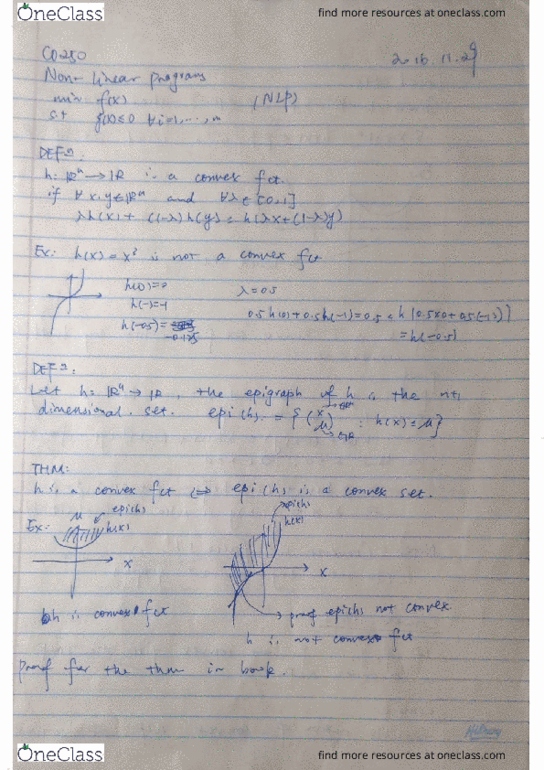 OneClass find more resources at oneclass.com
CO250 2016.11.29
Non-linear programs
min f(x) (NLP)
s.t gi(x) ≤ 0 ∀i=1,...,m
DEFⁿ:
h: ℝⁿ → ℝ is a convex fct.
if ∀x,y∈ℝⁿ and ∀λ∈[0,1]
λh(x) + (1-λ)h(y) ≥ h(λx+(1-λ)y)
Ex: h(x)=x³ is not a convex fct
h(0)=0 λ=0.5
h(-1)=-1 0.5h(0)+0.5h(-1)=0.5 < h[0.5x0+0.5(-1)]
h(-0.5)= -0.125 =h(-0.5)
DEFⁿ:
Let h: ℝⁿ → ℝ, the epigraph of h is the n+1
dimensional set. epi(h) = {(x μ) : h(x) ≤ μ}
THM:
h is a convex fct ⟺ epi(h) is a convex set.
Ex: μ epi(h) h(x) x
epi(h) h(x) x
h is convex fct proof epi(h) not convex
h is not convex fct
Proof for the thm in book.
OneClass find more resources at oneclass.com